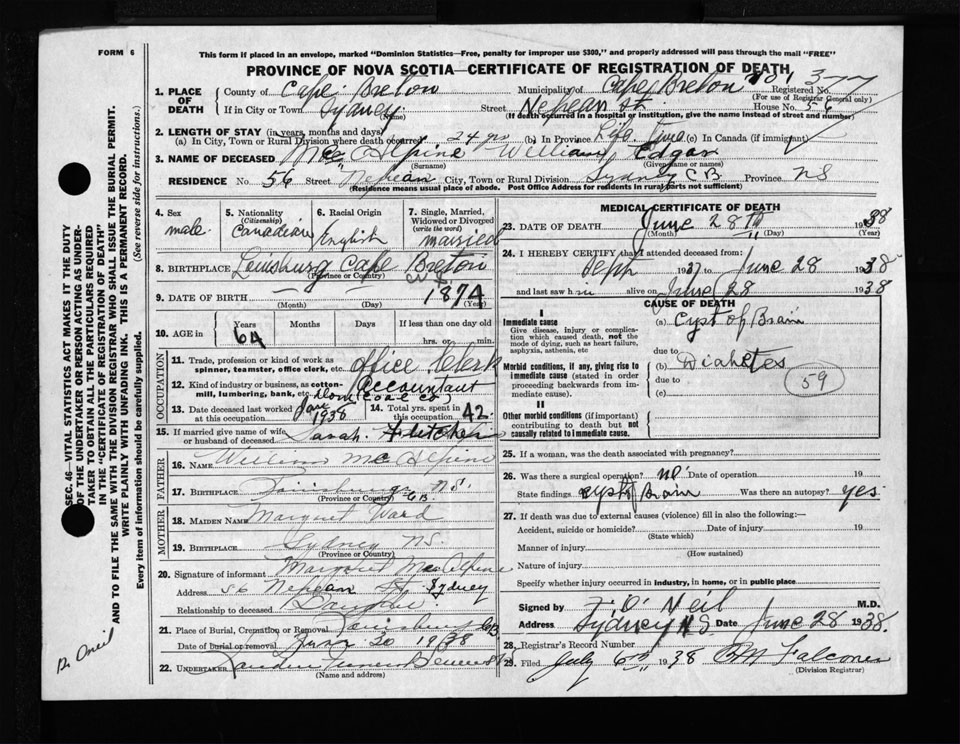 FORM 6
This form if placed in an envelope, marked "Dominion Statistics—Free, penalty for improper use $300," and properly addressed will pass through the mail "FREE"
PROVINCE OF NOVA SCOTIA—CERTIFICATE OF REGISTRATION OF DEATH
377
1. PLACE OF DEATH County of Cape Breton Municipality of Cape Breton Registered No.
(For use of Registrar General only)
If in City or Town Sydney Street Nepean St. House No. 56
(Name) (If death occurred in a hospital or institution, give the name instead of street and number)
2. LENGTH OF STAY (in years, months and days)
(a) In City, Town or Rural Division where death occurred 24 yrs (b) In Province Life Time (c) In Canada (if immigrant)
3. NAME OF DECEASED McAlpine William Edgar
(Surname) (Given name or names)
RESIDENCE No. 56 Street Nepean City, Town or Rural Division Sydney C.B. Province NS
(Residence means usual place of abode. Post Office Address for residents in rural parts not sufficient)
4. Sex male
5. Nationality (Citizenship) Canadian
6. Racial Origin English
7. Single, Married, Widowed or Divorced (write the word) married
8. BIRTHPLACE Louisburg Cape Breton
(Province or Country)
9. DATE OF BIRTH 1874
(Month) (Day) (Year)
10. AGE in Years 64 Months Days If less than one day old hrs. or min.
OCCUPATION
11. Trade, profession or kind of work as spinner, teamster, office clerk, etc. Office Clerk
12. Kind of industry or business, as cotton-mill, lumbering, bank, etc. Accountant Dom Coal Co
13. Date deceased last worked at this occupation 1938
14. Total yrs. spent in this occupation 42
15. If married give name of wife or husband of deceased Sarah
FATHER
16. NAME William McAlpine
17. BIRTHPLACE Louisburg C.B. NS.
(Province or Country)
MOTHER
18. MAIDEN NAME Margret Ward
19. BIRTHPLACE Sydney NS
(Province or Country)
20. Signature of informant Margaret MacAlpine
Address 56 Nepean St. Sydney
Relationship to deceased Daughter
21. Place of Burial, Cremation or Removal Louisburg CB
Date of burial or removal 1938
22. UNDERTAKER
(Name and address)
MEDICAL CERTIFICATE OF DEATH
23. DATE OF DEATH June 28TH 1938
(Month) (Day) (Year)
24. I HEREBY CERTIFY that I attended deceased from
Sept 1937 to June 28 1938
and last saw him alive on June 28 1938
CAUSE OF DEATH
I
Immediate cause
Give disease, injury or complication which caused death, not the mode of dying, such as heart failure, asphyxia, asthenia, etc
(a) Cyst of Brain
due to
Morbid conditions, if any, giving rise to immediate cause (stated in order proceeding backwards from immediate cause).
(b) Diabetes
59
due to
(c)
II
Other morbid conditions (if important) contributing to death but not causally related to immediate cause.
25. If a woman, was the death associated with pregnancy?
26. Was there a surgical operation? no Date of operation 19
State findings Cyst of Brain Was there an autopsy? yes
27. If death was due to external causes (violence) fill in also the following:—
Accident, suicide or homicide? Date of injury 19
(State which)
Manner of injury
(How sustained)
Nature of injury
Specify whether injury occurred in industry, in home, or in public place
Signed by O'Neil M.D.
Address Sydney NS Date June 28 1938.
28. Registrar's Record Number
29. Filed July 6th 1938 Falconer
(Division Registrar)
SEC. 46—VITAL STATISTICS ACT MAKES IT THE DUTY
OF THE UNDERTAKER OR PERSON ACTING AS UNDERTAKER
TO OBTAIN ALL THE PARTICULARS REQUIRED
IN THE "CERTIFICATE OF REGISTRATION OF DEATH"
AND TO FILE THE SAME WITH THE DIVISION REGISTRAR WHO SHALL ISSUE THE BURIAL PERMIT.
WRITE PLAINLY WITH UNFADING INK. THIS IS A PERMANENT RECORD.
Every item of information should be carefully supplied. (See reverse side for instructions.)
Dr Oneil